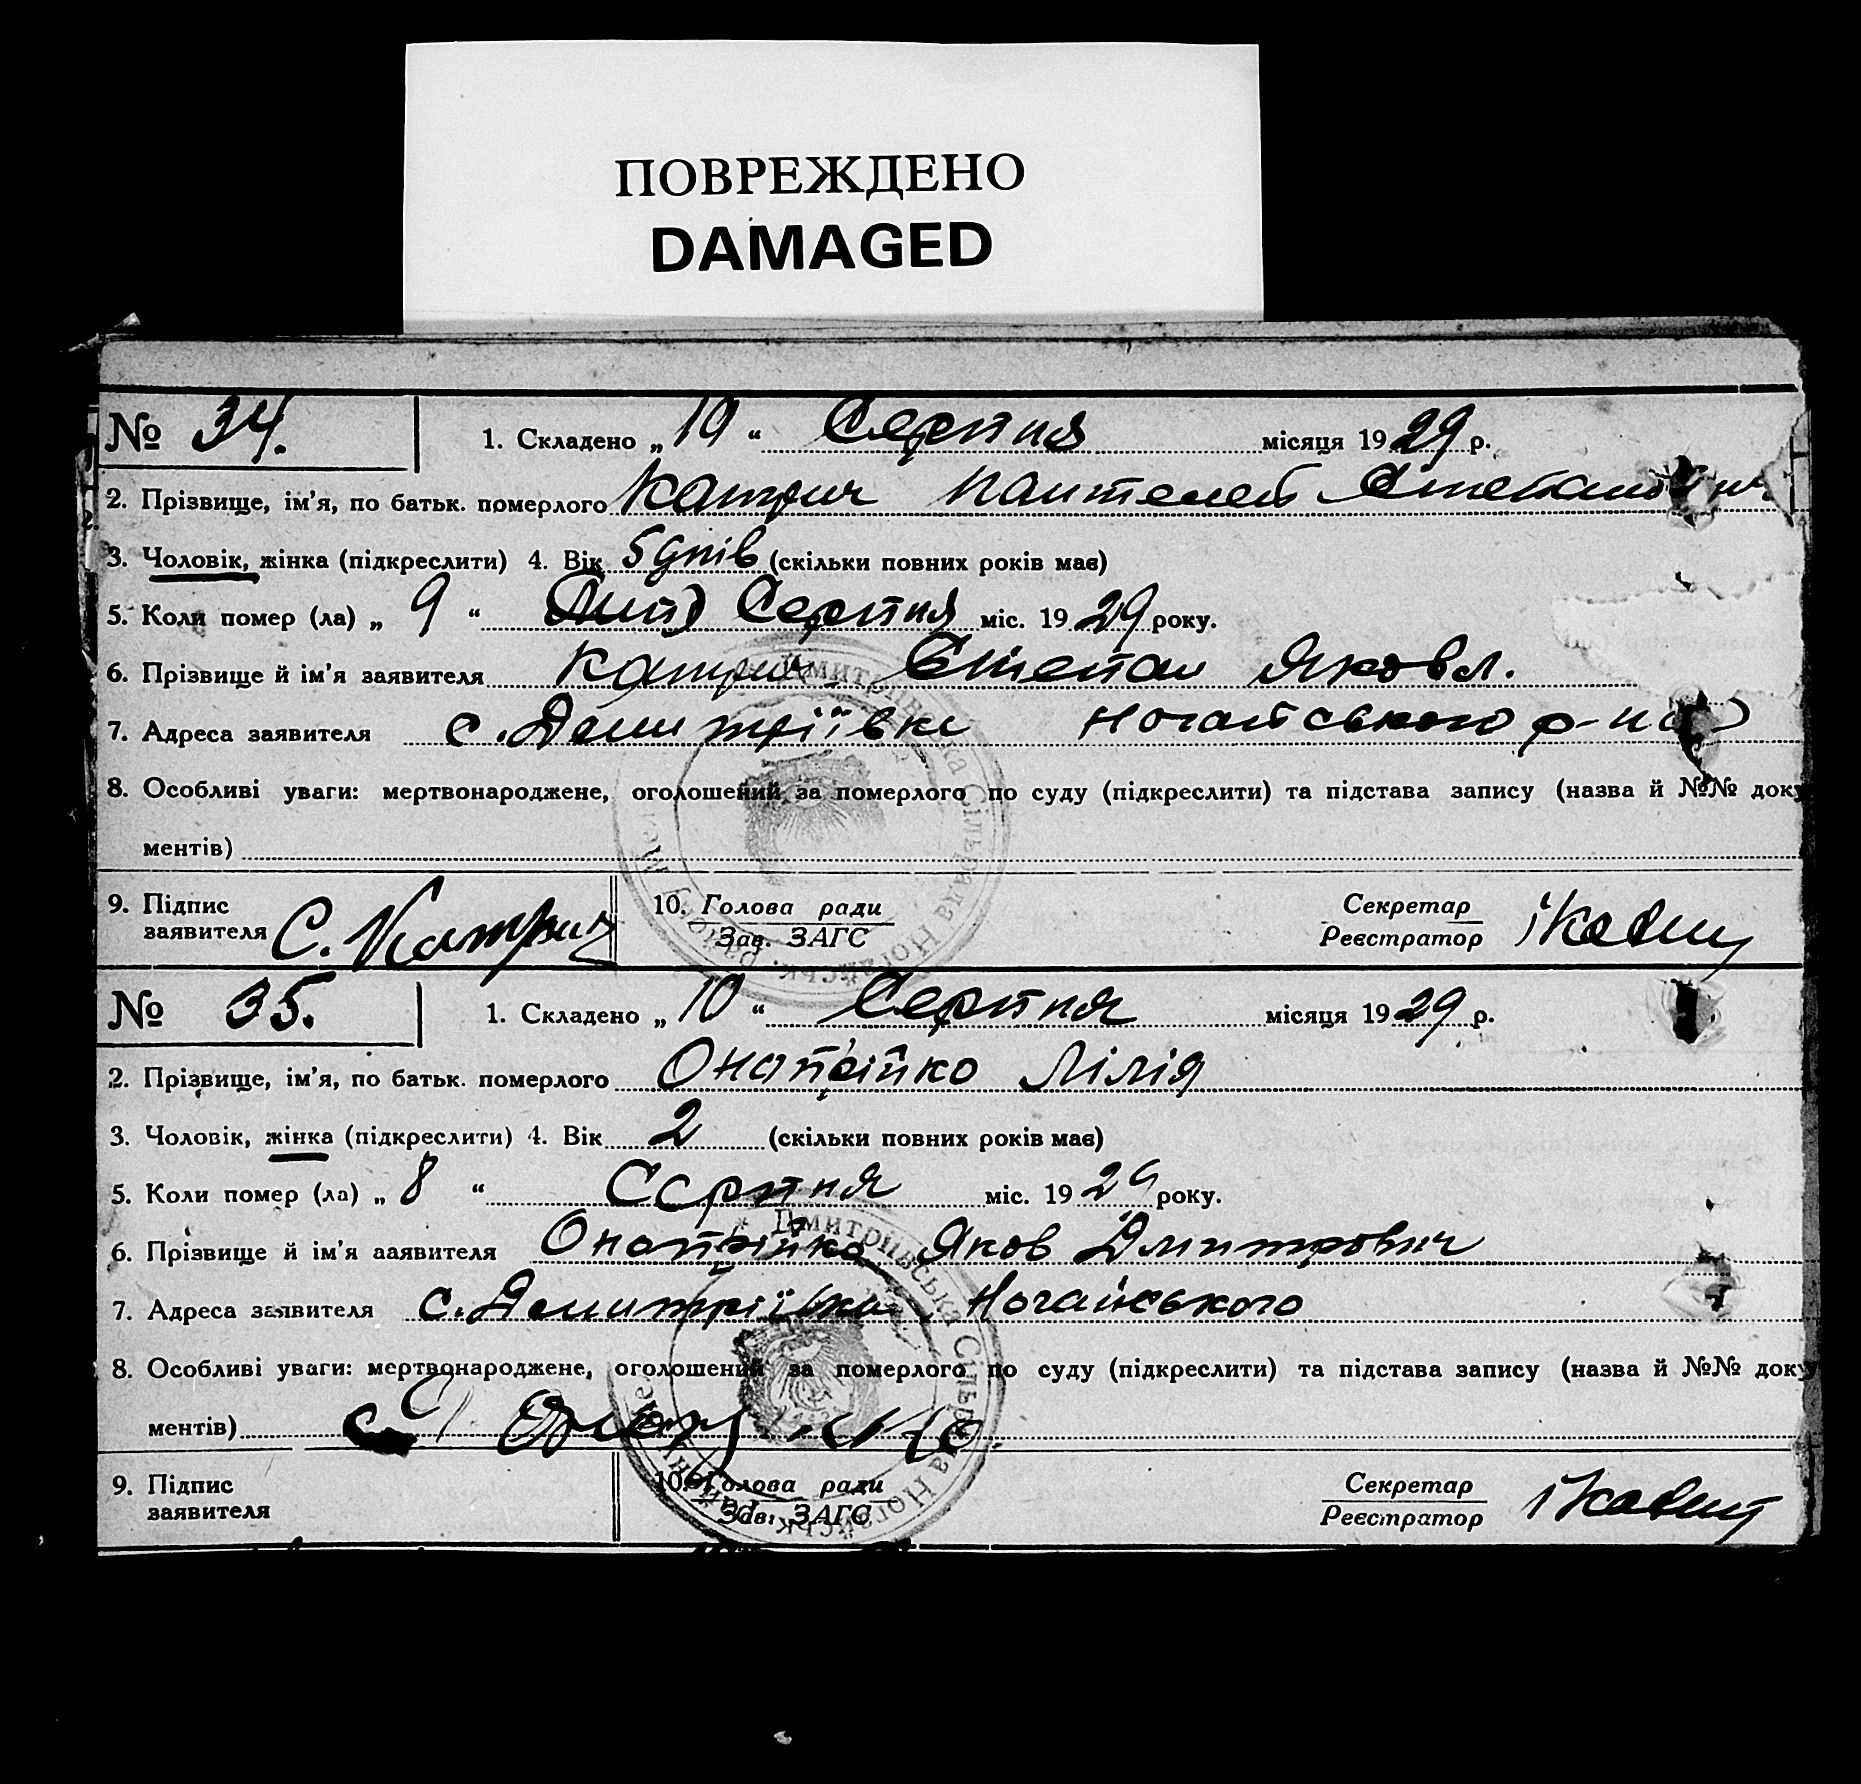 ПОВРЕЖДЕНО
DAMAGED
№ 34. 1. Складено „ 10 “ Серпня місяця 1929 р.
2. Прізвище, ім’я, по батьк. померлого Катрич Пантелей Степанович
3. Чоловік, жінка (підкреслити) 4. Вік 5 днів (скільки повних років має)
5. Коли помер (ла) „ 9 “ Серпня міс. 1929 року.
6. Прізвище й ім’я заявителя Катрич Степан Яковл.
7. Адреса заявителя с. Демитріївки Ногайського р-на
8. Особливі уваги: мертвонароджене, оголошений за померлого по суду (підкреслити) та підстава запису (назва й №№ доку
ментів)
9. Підпис заявителя С. Катрич 10. Голова ради Зав. ЗАГС Секретар Реєстратор
№ 35. 1. Складено „ 10 “ Серпня місяця 1929 р.
2. Прізвище, ім’я, по батьк. померлого Лілія
3. Чоловік, жінка (підкреслити) 4. Вік 2 (скільки повних років має)
5. Коли помер (ла) „ 8 “ Серпня міс. 1929 року.
6. Прізвище й ім’я заявителя Яков Дмитрович
7. Адреса заявителя с. Демитріївки Ногайського
8. Особливі уваги: мертвонароджене, оголошений за померлого по суду (підкреслити) та підстава запису (назва й №№ доку
ментів)
9. Підпис заявителя 10. Голова ради Зав. ЗАГС Секретар Реєстратор